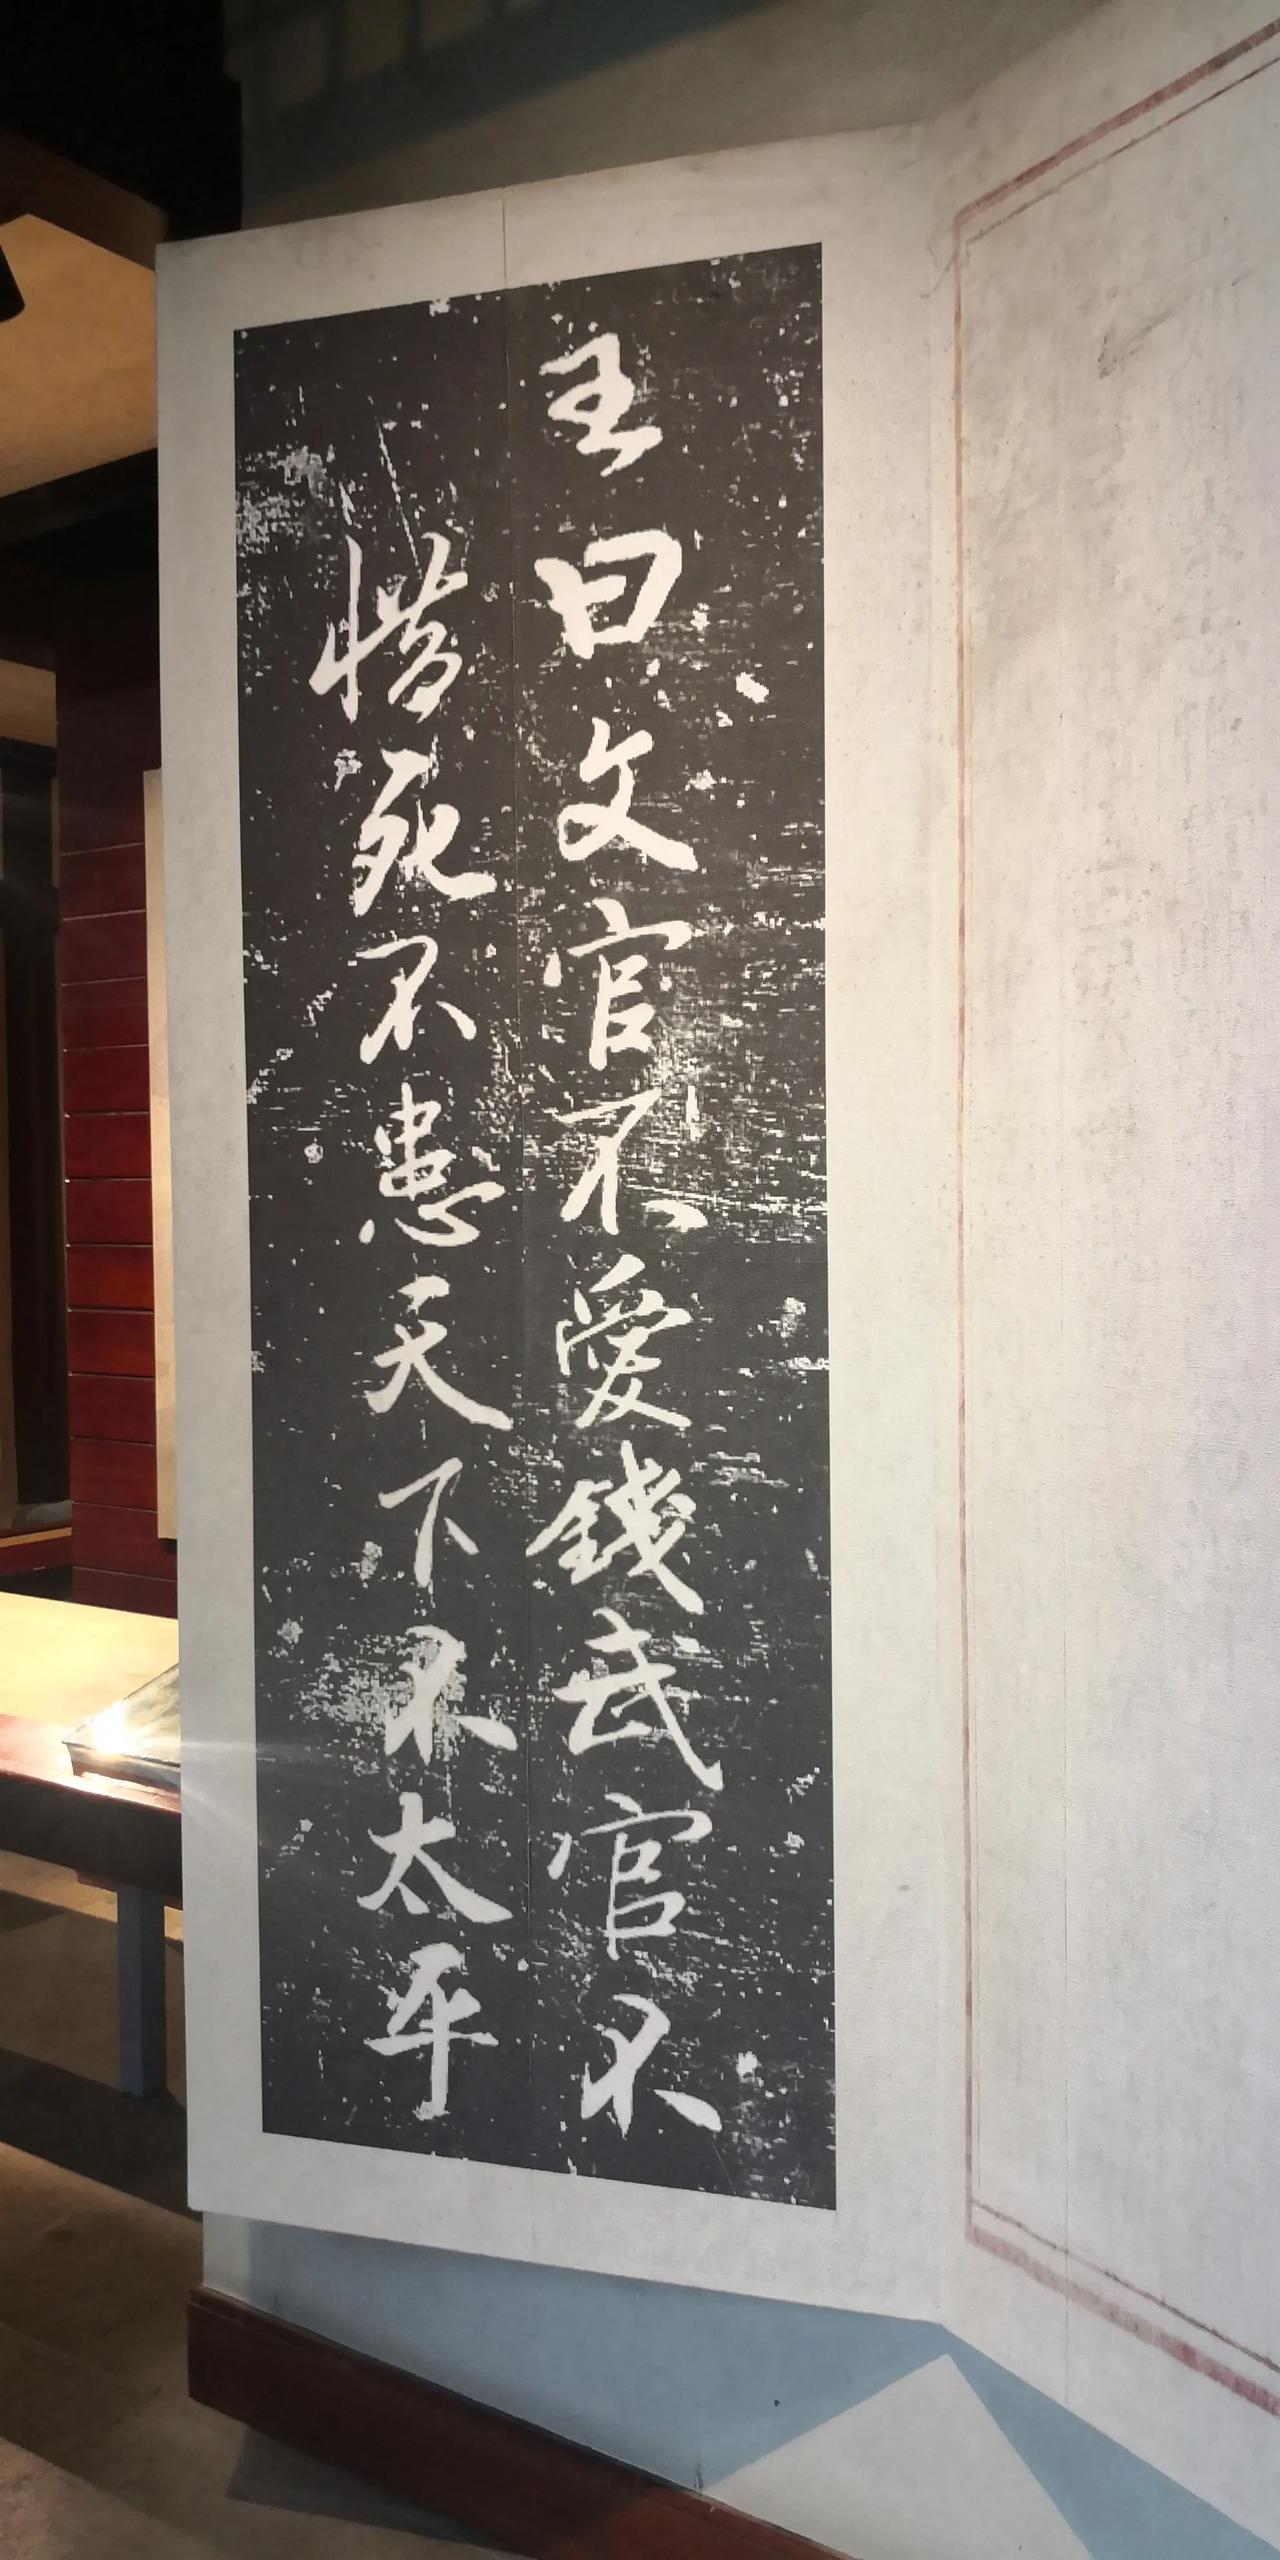 王曰文官不愛錢武官不
惜死不患天下不太平